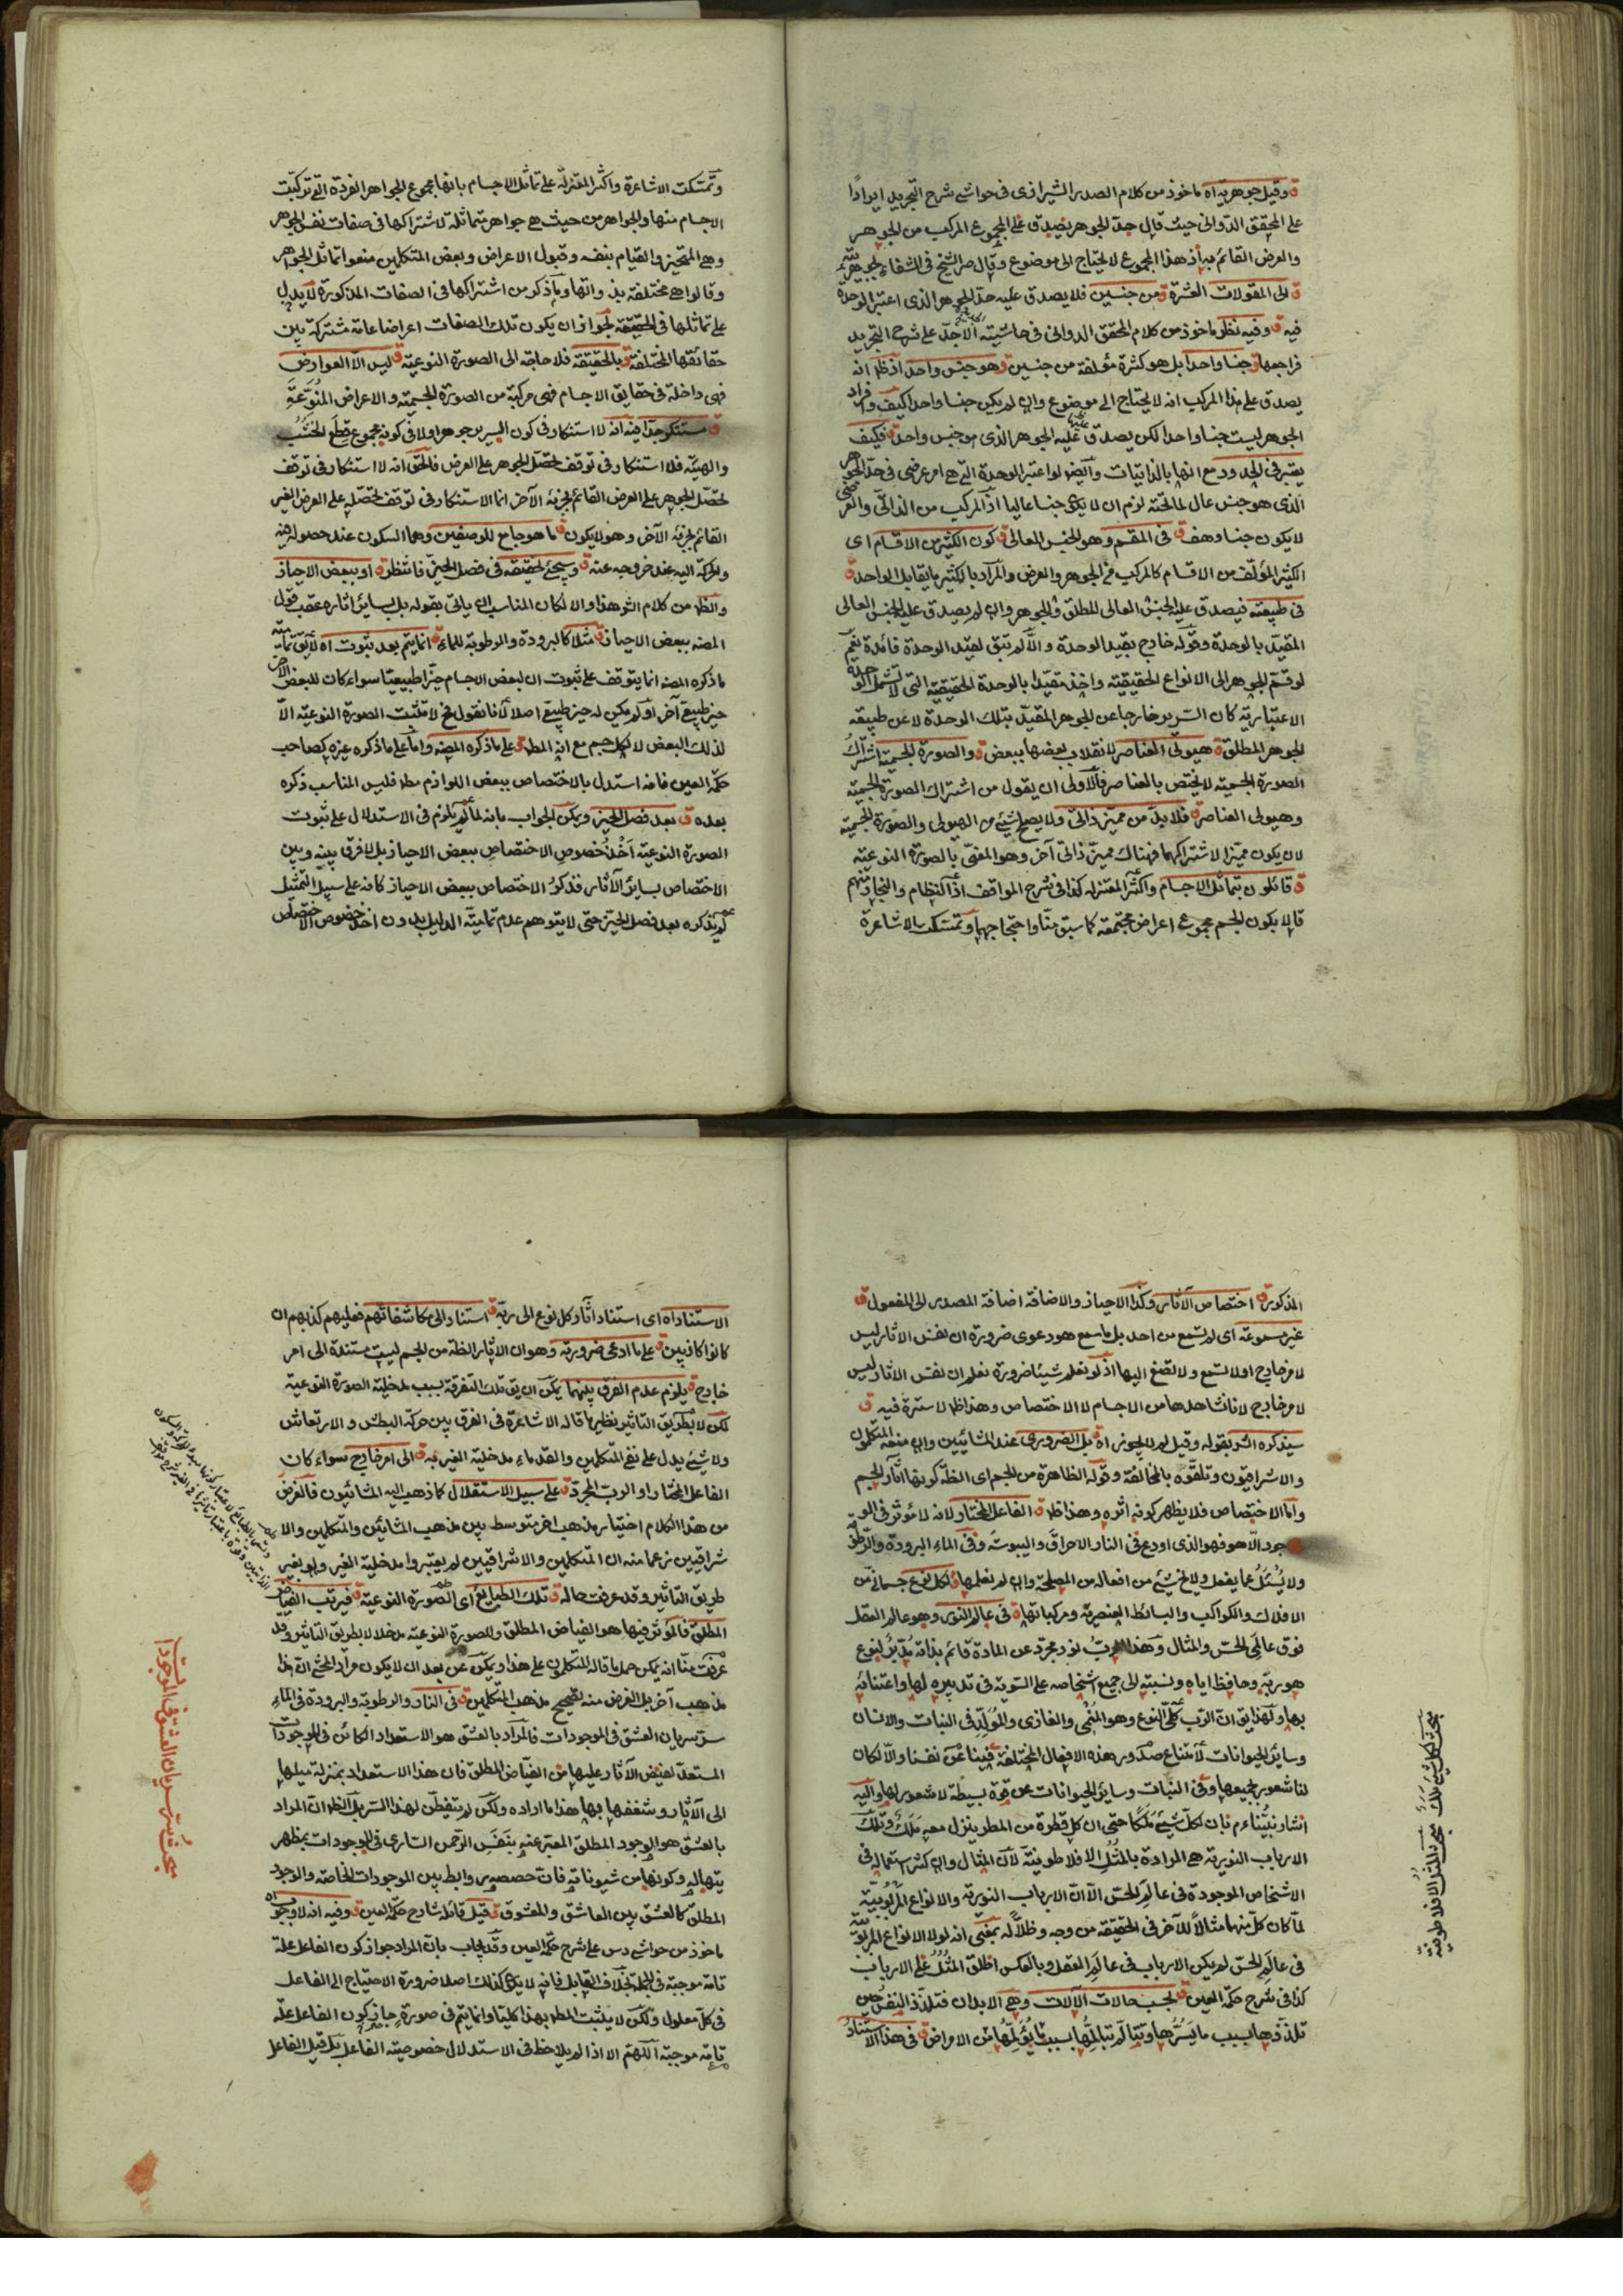 ق وقيل جوهريته اه ماخوذ من كلام الصدر الشيرازى فى حواشى شرح التجريد ايرادًا
على المحقق الدوانى حيث قال حدّ الجوهر يصدق على المجموع المركب من الجوهر
والعرض القائم به اذ هذا المجموع لا يحتاج الى موضوع وقال الشيخ فى الشفاء
ق الى المقولات العشرة ق ومن جنسين فلا يصدق عليه حدّ الجوهر الذى اعتبر الوحدة
فيه ق وفيه نظر ماخوذ من كلام المحقق الدوانى فى حاشيته الاجدّ على شرح التجريد
فراجعها ق جنسا واحدا بل هو كثرة مؤلفة من جنسين ق وهو جنس واحد اذ ظ انه
يصدق على هذا المركب انه لا يحتاج الى موضوع وان لم يكن جنسا واحدا كيف وافراد
الجوهر ليست جنسا واحدا لكن يصدق عليه الجوهر الذى هو جنس واحد ق فكيف
يعتبر فى الحدود مع انها بالذاتيات وايضا لو اعتبر الوحدة التى هى امر عرضى فى حدّ الجوهر
الذى هو جنس عال لما تحته لزم ان لا يكون جنسا عاليا اذ المركب من الذاتى والعرضى
لا يكون جنسا وهف ق فى المقسم وهو الجنس العالى ق كون الكثير من الاقسام اى
الكثير المؤلف من الاقسام كالمركب من الجوهر والعرض والمراد بالكثير ما يقابل الواحد ق
فى طبيعته فيصدق عليه الجنس العالى المطلق والجوهر وان لم يصدق عليه الجنس العالى
المقيّد بالوحدة وقوله خارج بقيد الوحدة والّا لم تبق لقيد الوحدة فائدة نعم
لو قسّم الجوهر الى الانواع الحقيقية واخذ مقيّدا بالوحدة الحقيقية التى لا تشمل الوحدة
الاعتبارية كان السرير خارجا عن الجوهر المقيّد بتلك الوحدة لا عن طبيعة
الجوهر المطلق ق هيولى العناصر لانقلاب بعضها ببعض ق والصورة الجسمية اشتراك
الصورة الجسمية لا يختص بالعناصر فالاولى ان يقول من اشتراك الصورة الجسمية
وهيولى العناصر ق فلا بدّ من مميّز ذاتى ولا يصلح شئ من الهيولى والصورة الجسمية
لان يكون مميّزا لاشتراكهما فهناك مميّز ذاتى آخر وهو المعنّى بالصورة النوعية
ق قائلون بتماثل الاجسام واكثر المعتزله كذا فى شرح المواقف اذ النظام والنجار منهم
قالا يكون الجسم مجموع اعراض مجتمعة كما سبق منّا واحتجاجهما وتمسكت الاشاعرة
وتمسّكت الاشاعرة واكثر المعتزلة على تماثل الاجسام بانها مجموع الجواهر الفردة التى تركبت
الاجسام منها والجواهر من حيث هى جواهر متماثلة لاشتراكها فى صفات نفس الجوهر
وهى التحيز والقيام بنفسه وقبول الاعراض وبعض المتكلمين منعوا تماثل الجواهر
وقالوا هى مختلفة بذواتها وما ذكر من اشتراكها فى الصفات المذكورة لا يدل
على تماثلها فى الحقيقة لجواز ان يكون تلك الصفات اعراضا عامة مشتركة بين
حقائقها المختلفة ق بالحقيقة فلا حاجة الى الصورة النوعية ق ليس الّا العوارض
فهى داخلة فى حقايق الاجسام فهى مركبة من الصورة الجسمية والاعراض المنوّعة
ق مستنكر جدا فيه انه لا استنكار فى كون السرير جوهرا ولا فى كونه مجموع قطع الخشب
والهيئة فلا استنكار فى توقف تحصّل الجوهر على العرض فالحق انه لا استنكار فى توقف
تحصّل الجوهر على العرض القائم بجزئه الآخر انما الاستنكار فى توقف تحصّله على العرض الغير
القائم بجزئه الآخر وهو لا يكون ق ما هو جامع للوصفين وهما السكون عند حصوله فيه
والحركة اليه عند خروجه عنه ق وسيجئ تحقيقه فى فصل الحيّز فانتظر ق او ببعض الاحياز
والظ من كلام الش هذا والا لكان المناسب ان ياتى بقوله بل بساير اثاره عقب قول
المصنه ببعض الاحياز ق مثلا كالبرودة والرطوبة للماء ق انما يتم بعد ثبوت اه لا يق تمامية
ما ذكره المصنه انما يتوقف على ثبوت ان لبعض الاجسام حيّزا طبيعيّا سواء كان للبعض الآخر
حيز طبيعى آخر او لم يكن له حيز طبيعى اصلا لانا نقول فح لا تثبت الصورة النوعية الّا
لذلك البعض لا لكل جسم مع انه المطـ ق على ما ذكره المصنه واما على ما ذكره غيره كصاحب
حكمة العين فانه استدل بالاختصاص ببعض اللوازم مطـ فليس المناسب ذكره
بعده ق بعد فصل الحيّز ويمكن الجواب بانه لما لم يلزم فى الاستدلال على ثبوت
الصورة النوعية اخذ خصوص الاختصاص ببعض الاحياز بل لا فرق بينه وبين
الاختصاص بساير الآثار فذكر الاختصاص ببعض الاحياز كانه على سبيل التمثيل
لم يذكره بعد فصل الحيّز حتى لا يتوهم عدم تمامية الدليل بدون اخذ خصوص الاختصاص
المذكور ق اختصاص الآثار وكذا الاحياز والاضافة اضافة المصدر الى المفعول ق
غير مسموعة اى لم تسمع من احد بل ما سمع هو دعوى ضرورة ان نفس الاثار ليس
لامر خارج او لا تسمع ولا تصغ اليها اذ لو نعلم شيئا ضرورة نعلم ان نفس الاثار ليس
لامر خارج لانا نشاهدها من الاجسام لا الاختصاص وهذا ظ لا سترة فيه ق
سيذكره الش بقوله وقيل لم لا يجوز اه ق بل الضرورى عند المشائيين وان منعه المتكلمون
والاشراقيون وتلقّوه بالمخالفة وقوله الظاهرة من الجسم اى الظـ كونها آثار الجسم
واما الاختصاص فلا يظهر كونه اثره وهذا ظـ ق الفاعل المختار لانه لا مؤثر فى الو
جود الّا هو فهو الذى اودع فى النار الاحراق واليبوسة وفى الماء البرودة والرطوبة
ولا يُسئل عما يفعل ولا يخ شئ من افعاله من المصلحة وان لم نعلمها ق لكل نوع جسمانى من
الافلاك والكواكب والبسائط العنصرية ومركباتها ق فى عالم النور وهو عالم العقل
فوق عالمى الحسّ والمثال وهذا الربّ نور مجرّد عن المادة قائم بذاته مدبّر لنوع
هو ربه وحافظ اياه ونسبته الى جميع اشخاصه على السوية فى تدبيره لها واعتنائه
بها ولهذا يق انّ الرّب كلّى النوع وهو المُنمى والغازى والمولّد فى النبات والانسان
وسائر الحيوانات لامتناع صدور هذه الافعال المختلفة فينا عن نفسنا والّا لكان
لنا شعور بجميعها وفى النبات وسائر الحيوانات عن قوة بسيطة لا شعور لها واليه
اشار نبيّنا ءم بان لكلّ شئ مَلَكًا حتى ان كل قطرة من المطر ينزل معه ملك وتلك
الارباب النورية هى المرادة بالمُثُل الافلاطونية لانّ المثال وان كثر استعماله فى
الاشخاص الموجودة فى عالم الحسّ الّا انّ الارباب النورية والانواع المربوبيّة
لما كان كلّ منهما مثالاً للآخر فى الحقيقة من وجه وظلّاً له بمعنى انه لولا الانواع المربوبية
فى عالم الحسّ لم يكن الارباب فى عالم العقل وبالعكس اطلق المُثُل على الارباب
كذا فى شرح حكمة العين ق بحسب حالات الآلات وهى الابدان فتلذّذ النفس حين
تلذذها بسبب ما يسرّها وتتالم تبالمها بسبب ما يؤلمها من الامراض ق فى هذا الاستناد
مبحث لكل شئ ملك
مبحث المثل الافلاطونية
الاستناد اه اى استناد اثار كل نوع الى ربّه ق استنادا الى مكاشفاتهم فعليهم كذبهم ان
كانوا كاذبين ق على ما ادعى ضروريته وهو ان الاثار الظـة من الجسم ليست مستندة الى امر
خارج ق يلزم عدم الفرق بينهما يمكن ان يق تلك التفرقة بسبب مدخلية الصورة النوعية
لكن لا بطريق التاثير نظير ما قاله الاشاعرة فى الفرق بين حركة البطش والارتعاش
ولا شئ يدل على نفى المتكلمين والقدماء مدخلية الغير فيه ق الى امر خارج سواء كان
الفاعل المختار او الربّ المجرّد ق على سبيل الاستقلال كما ذهب اليه المشائيون فالغرض
من هذا الكلام اختيار مذهب اخر متوسط بين مذهب المشائين والمتكلمين والا
شراقيين زعما منه ان المتكلمين والاشراقيين لم يعتبروا مدخلية الغير ولو بغير
طريق التاثير وقد عرفت حاله ق تلك الطبايع اى الصورة النوعية ق فيرتب الفياض
المطلق فالمؤثر فيها هو الفياض المطلق وللصورة النوعية مدخلا لا بطريق التاثير وقد
عرفت منّا انه يمكن حمل ما قاله المتكلمون على هذا ويمكن عن بعد ان لا يكون مراد المحشى انّ هذا
مذهب آخر بل الغرض منه تصحيح مذهب المتكلمين ق فى النار والرطوبة والبرودة فى الماء
سرّ سريان العشق فى الموجودات فالمراد بالعشق هو الاستعداد الكائن فى الموجودات
المستعدّ لفيض الآثار عليها من الفيّاض المطلق فان هذا الاستعداد بمنزلة ميلها
الى الآثار وشغفها بها هذا ما اراده ولكن لم تتفطّن لهذا السرّ بل الظـ انّ المراد
بالعشق هو الوجود المطلق المعبّر عنه بنَفَس الرحمن السارى فى الموجودات بمظهر
يتهاله وكونها من شيوناته فانّ حصصه روابط بين الموجودات الخاصة والوجود
المطلق كالعشق بين العاشق والمعشوق ق قيل قائله شارح حكمة العين ق وفيه انه لا وجوب اه
ماخوذ من حواشى دس على شرح حكمة العين وقد يجاب بان المراد جواز كون الفاعل علة
تامة موجبة فى الجملة بخلاف القابل فانه لا يكون كذلك اصلا ضرورة الاحتياج الى الفاعل
فى كلّ معلول ولكن لا يثبت المطـ بهذا كليّا وانما يتم فى صورة جاز كون الفاعل علّة
تامّة موجبة اللّهمّ الا اذا لم يلاحظ فى الاستدلال خصوصية الفاعل بل قيل الفاعل
مبحث سرّ سريان العشق فى الموجودات